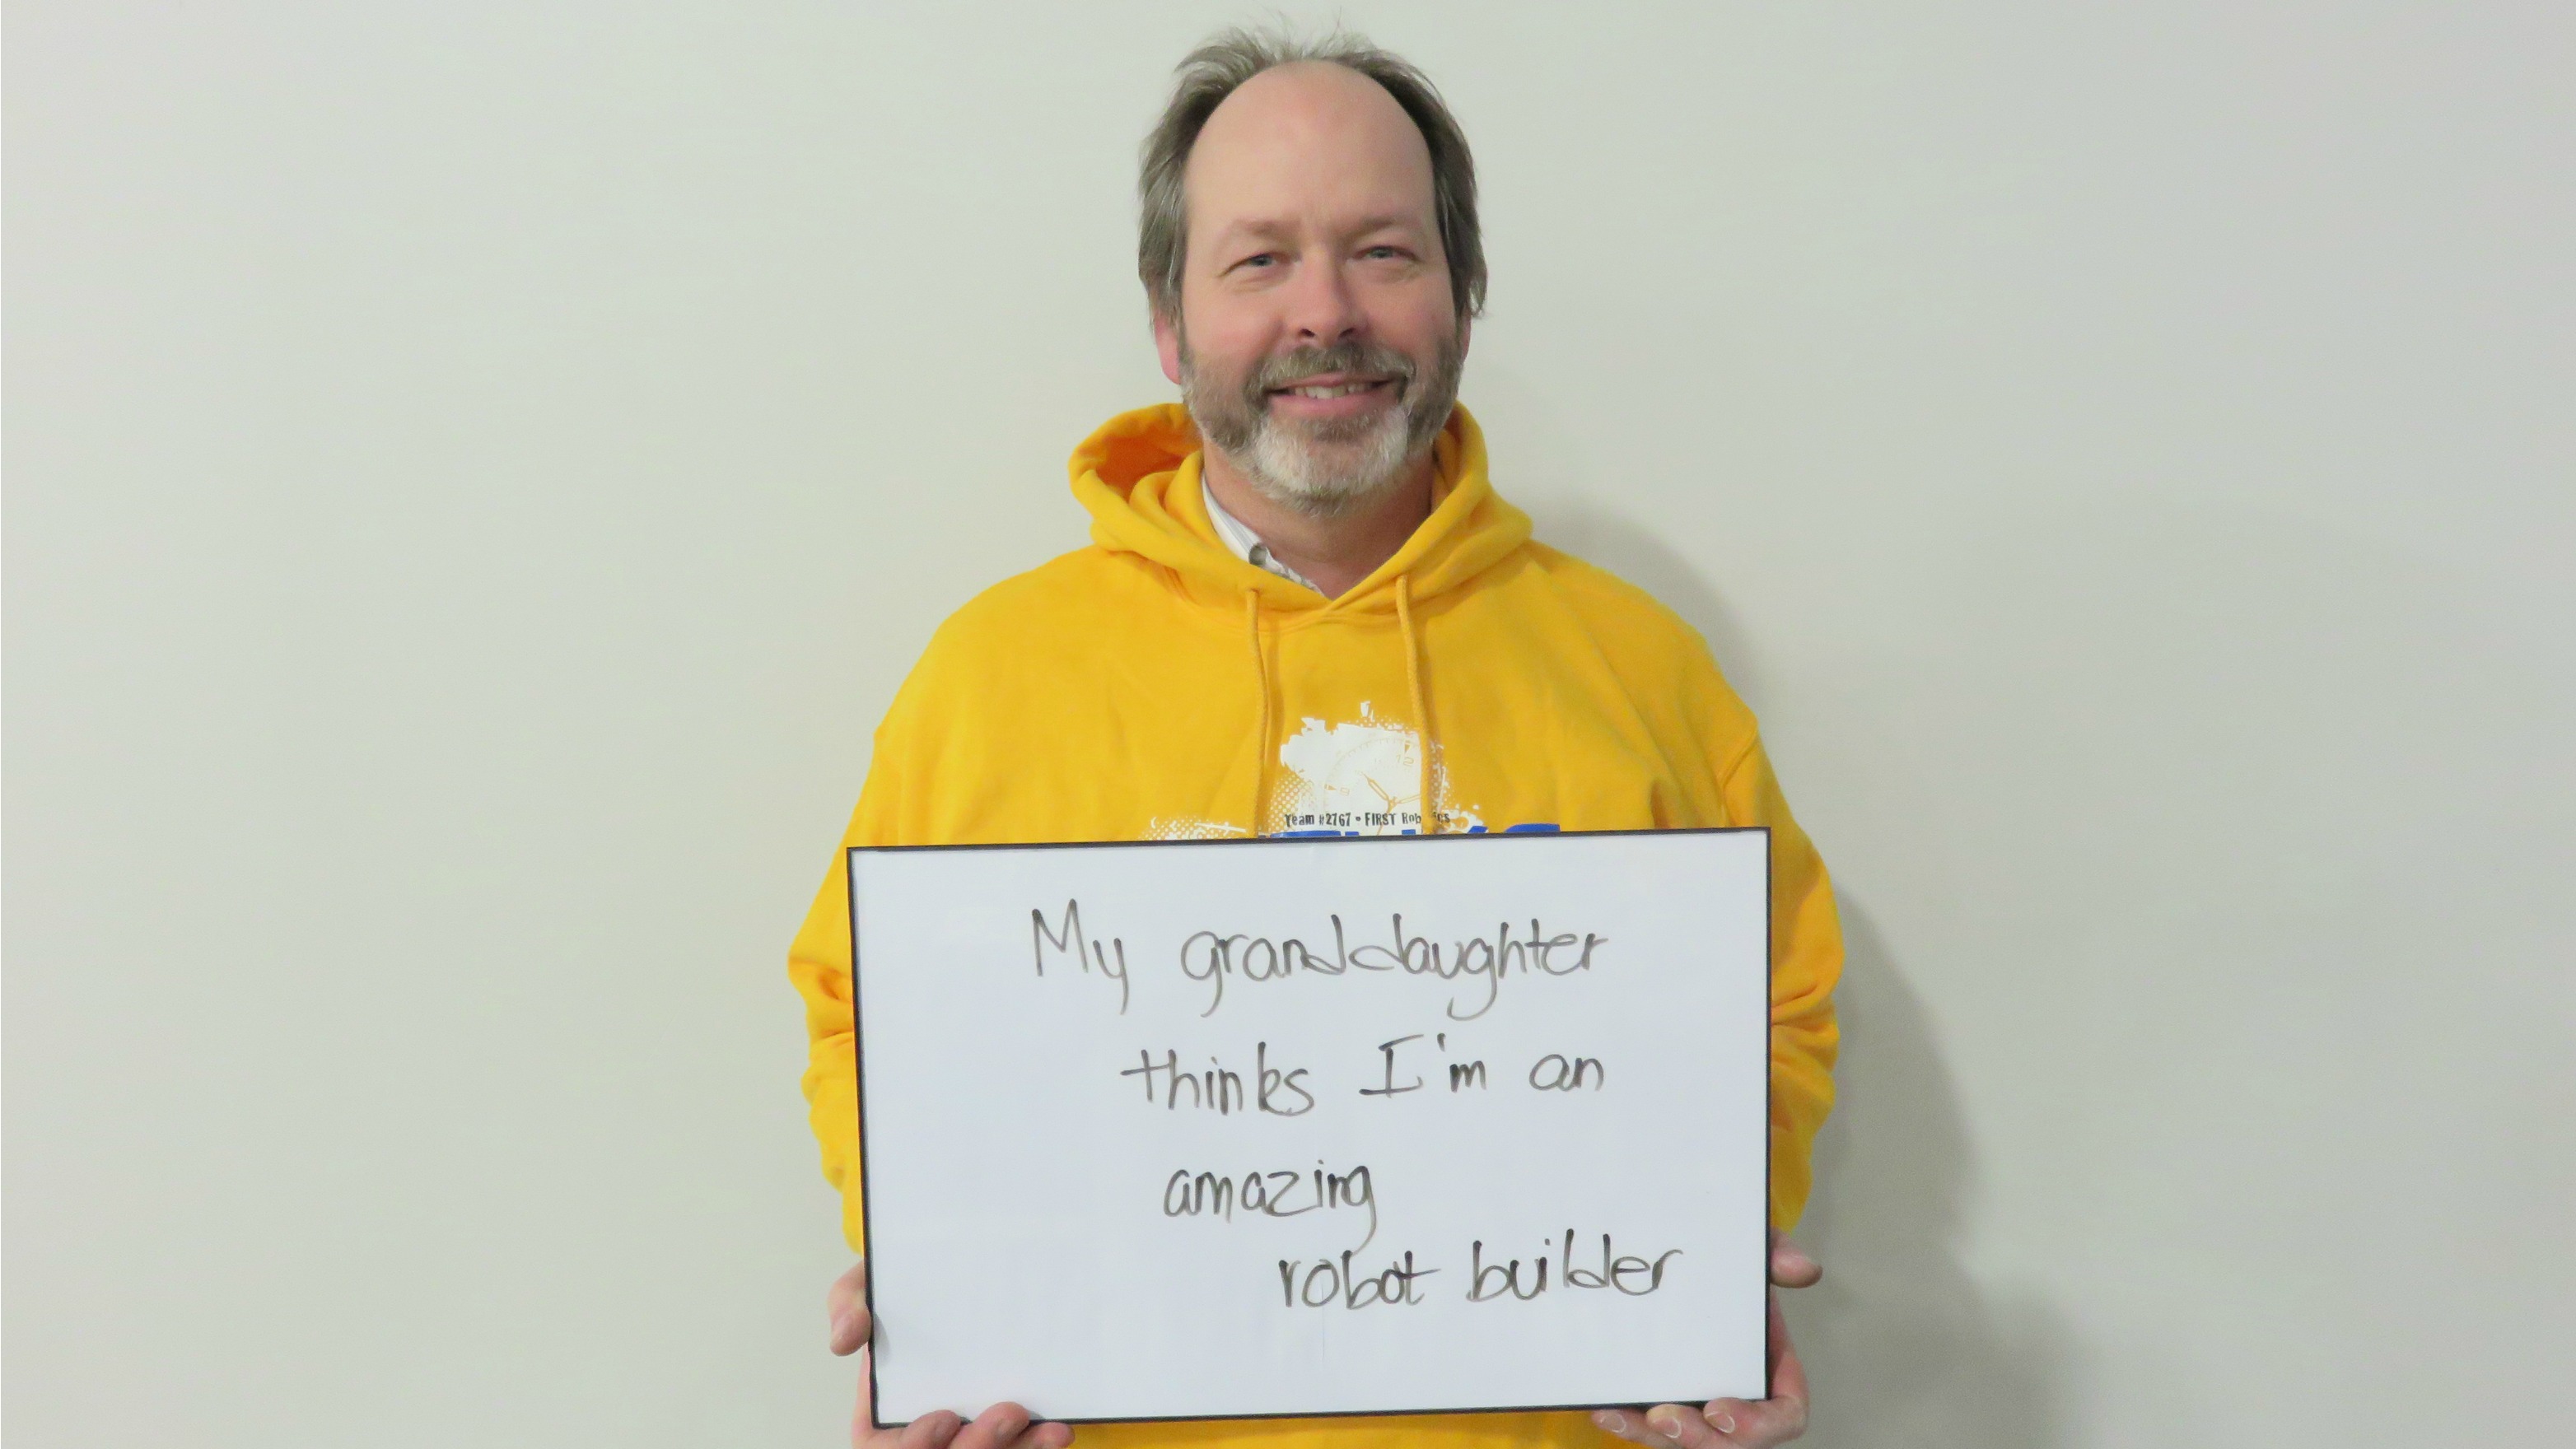 12
9
Team #2767 • FIRST
My granddaughter
thinks I'm an
amazing
robot builder